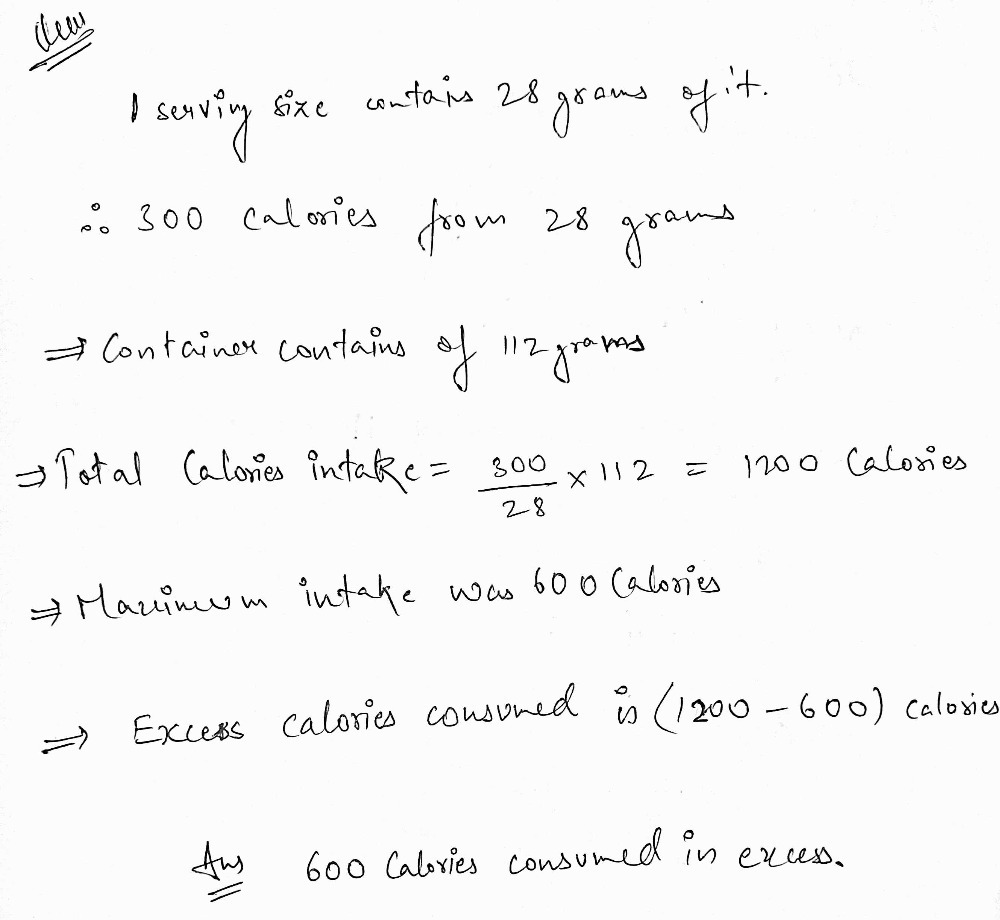 1 serving size contains 28 grams of it.
∴ 300 calories from 28 grams
⇒ Container contains of 112 grams
⇒ Total Calories intake = 300/28 × 112 = 1200 Calories
⇒ Maximum intake was 600 Calories
⇒ Excess calories consumed is (1200 - 600) calories
Ans 600 Calories consumed in excess.